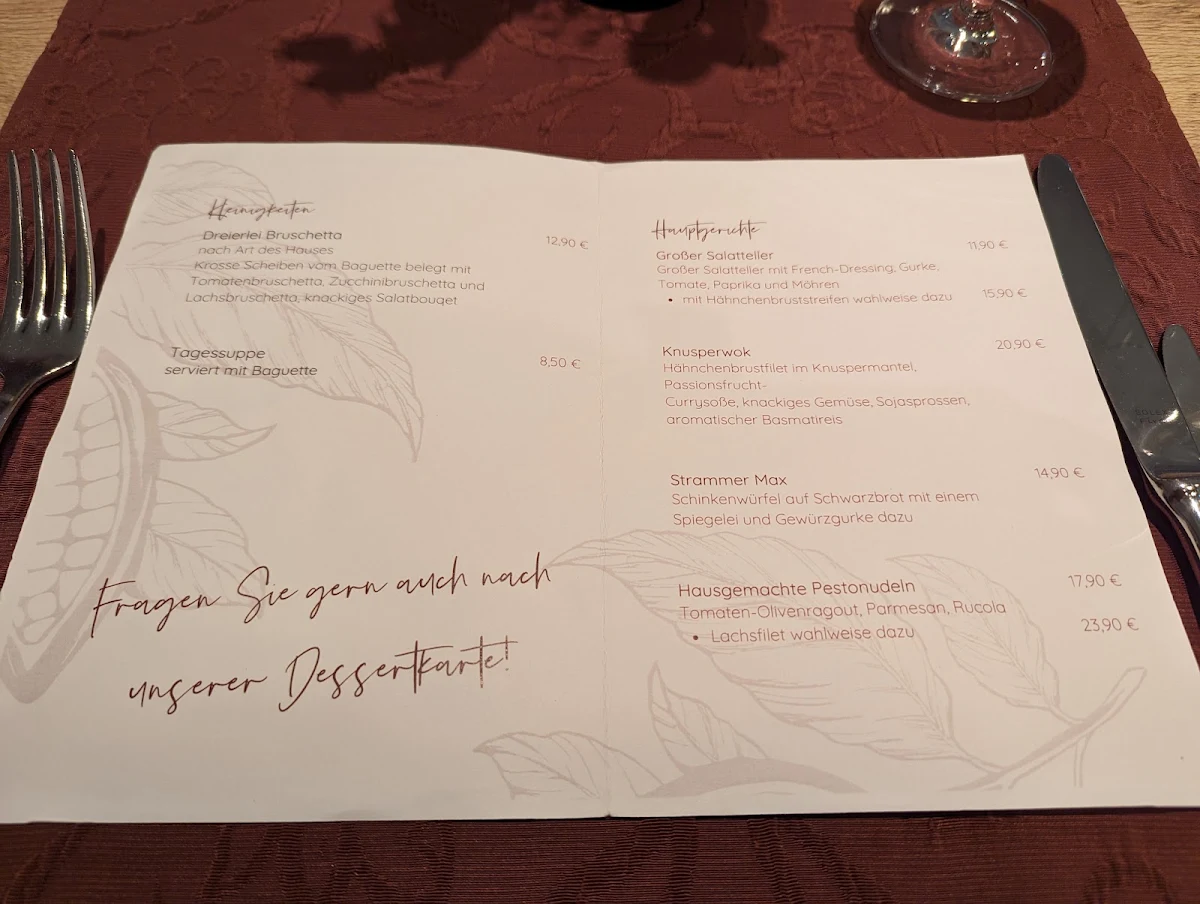 Kleinigkeiten
Dreierlei Bruschetta
nach Art des Hauses
12,90 €
Krosse Scheiben vom Baguette belegt mit
Tomatenbruschetta, Zucchinibruschetta und
Lachsbruschetta, knackiges Salatbouqet
Tagessuppe
serviert mit Baguette
8,50 €
Fragen Sie gern auch nach
unserer Dessertkarte!
Hauptgerichte
Großer Salatteller
11,90 €
Großer Salatteller mit French-Dressing, Gurke,
Tomate, Paprika und Möhren
• mit Hähnchenbruststreifen wahlweise dazu
15,90 €
Knusperwok
20,90 €
Hähnchenbrustfilet im Knuspermantel,
Passionsfrucht-
Currysoße, knackiges Gemüse, Sojasprossen,
aromatischer Basmatireis
Strammer Max
14,90 €
Schinkenwürfel auf Schwarzbrot mit einem
Spiegelei und Gewürzgurke dazu
Hausgemachte Pestonudeln
17,90 €
Tomaten-Olivenragout, Parmesan, Rucola
• Lachsfilet wahlweise dazu
23,90 €